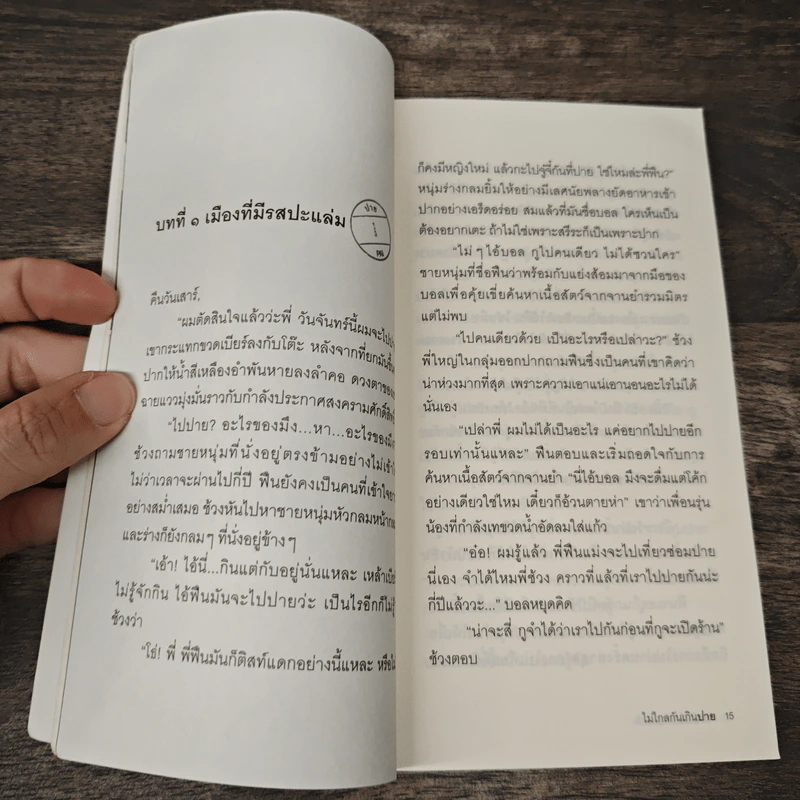 บทที่ ๑ เมืองที่มีรสปะแล่ม
ปาย
คืนวันเสาร์,
"ผมตัดสินใจแล้วว่ะพี่ วันจันทร์นี้ผมจะไปปาย
เขากระแทกขวดเบียร์ลงกับโต๊ะ หลังจากที่ยกมันขึ้น
ปากให้น้ำสีเหลืองอำพันหายลงลำคอ ดวงตาของ
ฉายแววมุ่งมั่นราวกับกำลังประกาศสงครามศักดิ์สิทธิ์
"ไปปาย? อะไรของมึง...หา...อะไรของมึง
ช้วงถามชายหนุ่มที่นั่งอยู่ตรงข้ามอย่างไม่เข้าใจ
ไม่ว่าเวลาจะผ่านไปกี่ปี ฟืนยังคงเป็นคนที่เข้าใจยาก
อย่างสม่ำเสมอ ช้วงหันไปหาชายหนุ่มหัวกลมหน้ากลม
และร่างก็ยังกลมๆ ที่นั่งอยู่ข้างๆ
"เอ้า! ไอ้นี่...กินแต่กับอยู่นั่นแหละ เหล้าเบียร์
ไม่รู้จักกิน ไอ้ฟืนมันจะไปปายว่ะ เป็นไรอีกก็ไม่รู้
ช้วงว่า
"โธ่! พี่ พี่ฟืนมันก็ติสท์แดกอย่างนี้แหละ หรือไม่
ก็คงมีหญิงใหม่ แล้วกะไปจู๋จี๋กันที่ปาย ใช่ไหมล่ะพี่ฟืน?"
หนุ่มร่างกลมยิ้มให้อย่างมีเลศนัยพลางยัดอาหารเข้า
ปากอย่างเอร็ดอร่อย สมแล้วที่มันชื่อบอล ใครเห็นเป็น
ต้องอยากเตะ ถ้าไม่ใช่เพราะสรีระก็เป็นเพราะปาก
"ไม่ๆ ไอ้บอล กูไปคนเดียว ไม่ได้ชวนใคร"
ชายหนุ่มที่ชื่อฟืนว่าพร้อมกับแย่งส้อมมาจากมือของ
บอลเพื่อคุ้ยเขี่ยค้นหาเนื้อสัตว์จากจานยำรวมมิตร
แต่ไม่พบ
"ไปคนเดียวด้วย เป็นอะไรหรือเปล่าวะ?" ช้วง
พี่ใหญ่ในกลุ่มออกปากถามฟืนซึ่งเป็นคนที่เขาคิดว่า
น่าห่วงมากที่สุด เพราะความเอาแน่เอานอนอะไรไม่ได้
นั่นเอง
"เปล่าพี่ ผมไม่ได้เป็นอะไร แค่อยากไปปายอีก
รอบเท่านั้นแหละ" ฟืนตอบและเริ่มถอดใจกับการ
ค้นหาเนื้อสัตว์จากจานยำ "นี่ไอ้บอล มึงจะดื่มแต่โค้ก
อย่างเดียวใช่ไหม เดี๋ยวก็อ้วนตายห่า" เขาว่าเพื่อนรุ่น
น้องที่กำลังเทขวดน้ำอัดลมใส่แก้ว
"อ๋อ! ผมรู้แล้ว พี่ฟืนแม่งจะไปเที่ยวซ่อมปาย
นี่เอง จำได้ไหมพี่ช้วง คราวที่แล้วที่เราไปปายกันน่ะ
กี่ปีแล้ววะ..." บอลหยุดคิด
"น่าจะสี่ กูจำได้ว่าเราไปกันก่อนที่กูจะเปิดร้าน"
ช้วงตอบ
ไม่ไกลกันเกินปาย 15